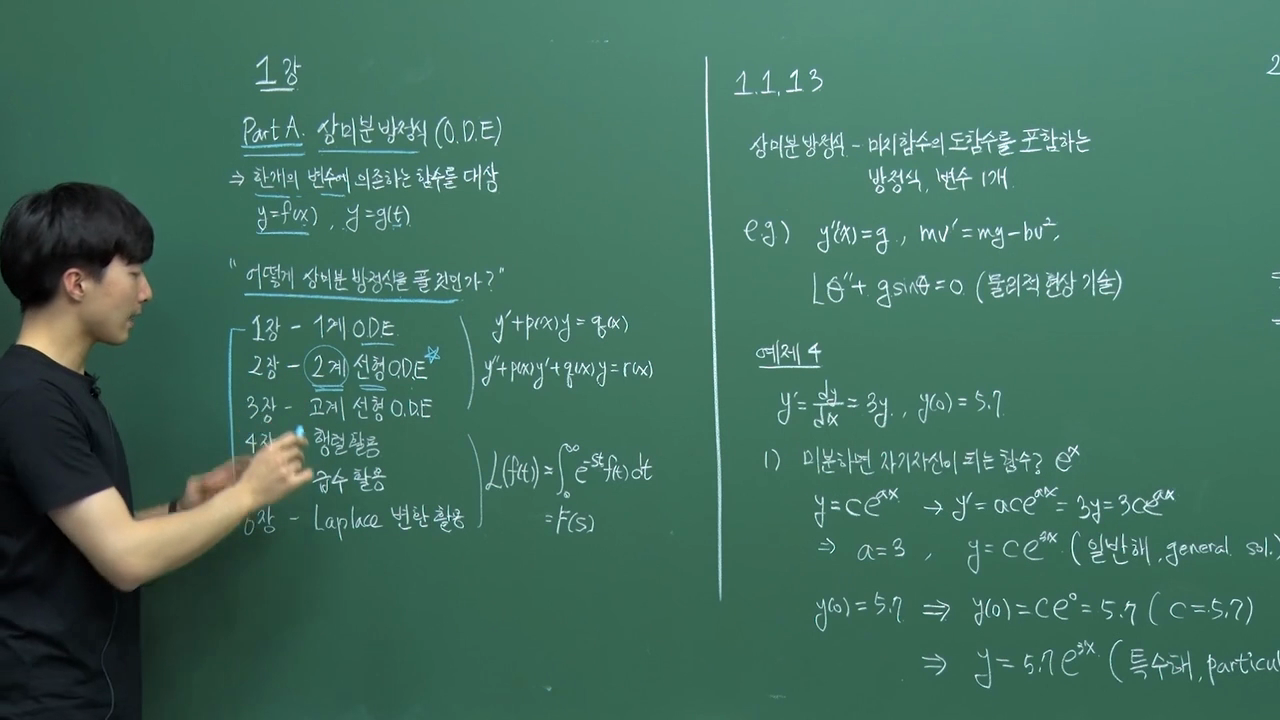 1강
Part A. 상미분 방정식 (O.D.E)
⇒ 한개의 변수에 의존하는 함수를 대상
y=f(x) , y=g(t)
"어떻게 상미분 방정식을 풀 것인가?"
1장 - 1계 O.D.E. y'+p(x)y=q(x)
2장 - 2계 선형 O.D.E ☆ y''+p(x)y'+q(x)y=r(x)
3장 - 고계 선형 O.D.E
4장 행렬 활용
급수 활용 L(f(t)) = ∫₀^∞ e^-st f(t) dt
6장 - Laplace 변환 활용 = F(s)
1.1, 1.3
상미분 방정식 - 미지함수의 도함수를 포함하는
방정식, 변수 1개
e.g) y''(x)=g , mv'=mg-bv²,
Lθ''+gsinθ=0 (물리적 현상 기술)
예제 4
y'=dy/dx=3y , y(0)=5.7
1) 미분하면 자기자신이 되는 함수? e^x
y=ce^ax → y'=ace^ax=3y=3ce^ax
⇒ a=3 , y=ce^3x (일반해, general sol.)
y(0)=5.7 ⇒ y(0)=ce^0=5.7 (c=5.7)
⇒ y=5.7e^3x (특수해, particul
2